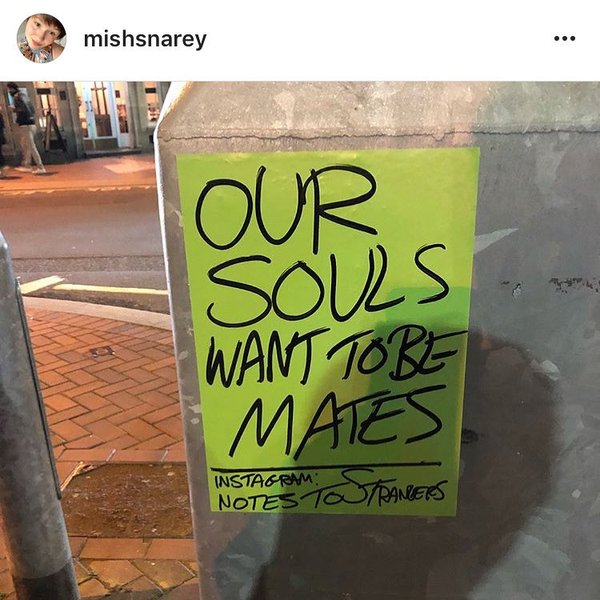 mishsnarey
OUR
SOULS
WANT TO BE
MATES
INSTAGRAM:
NOTES TO STRANGERS